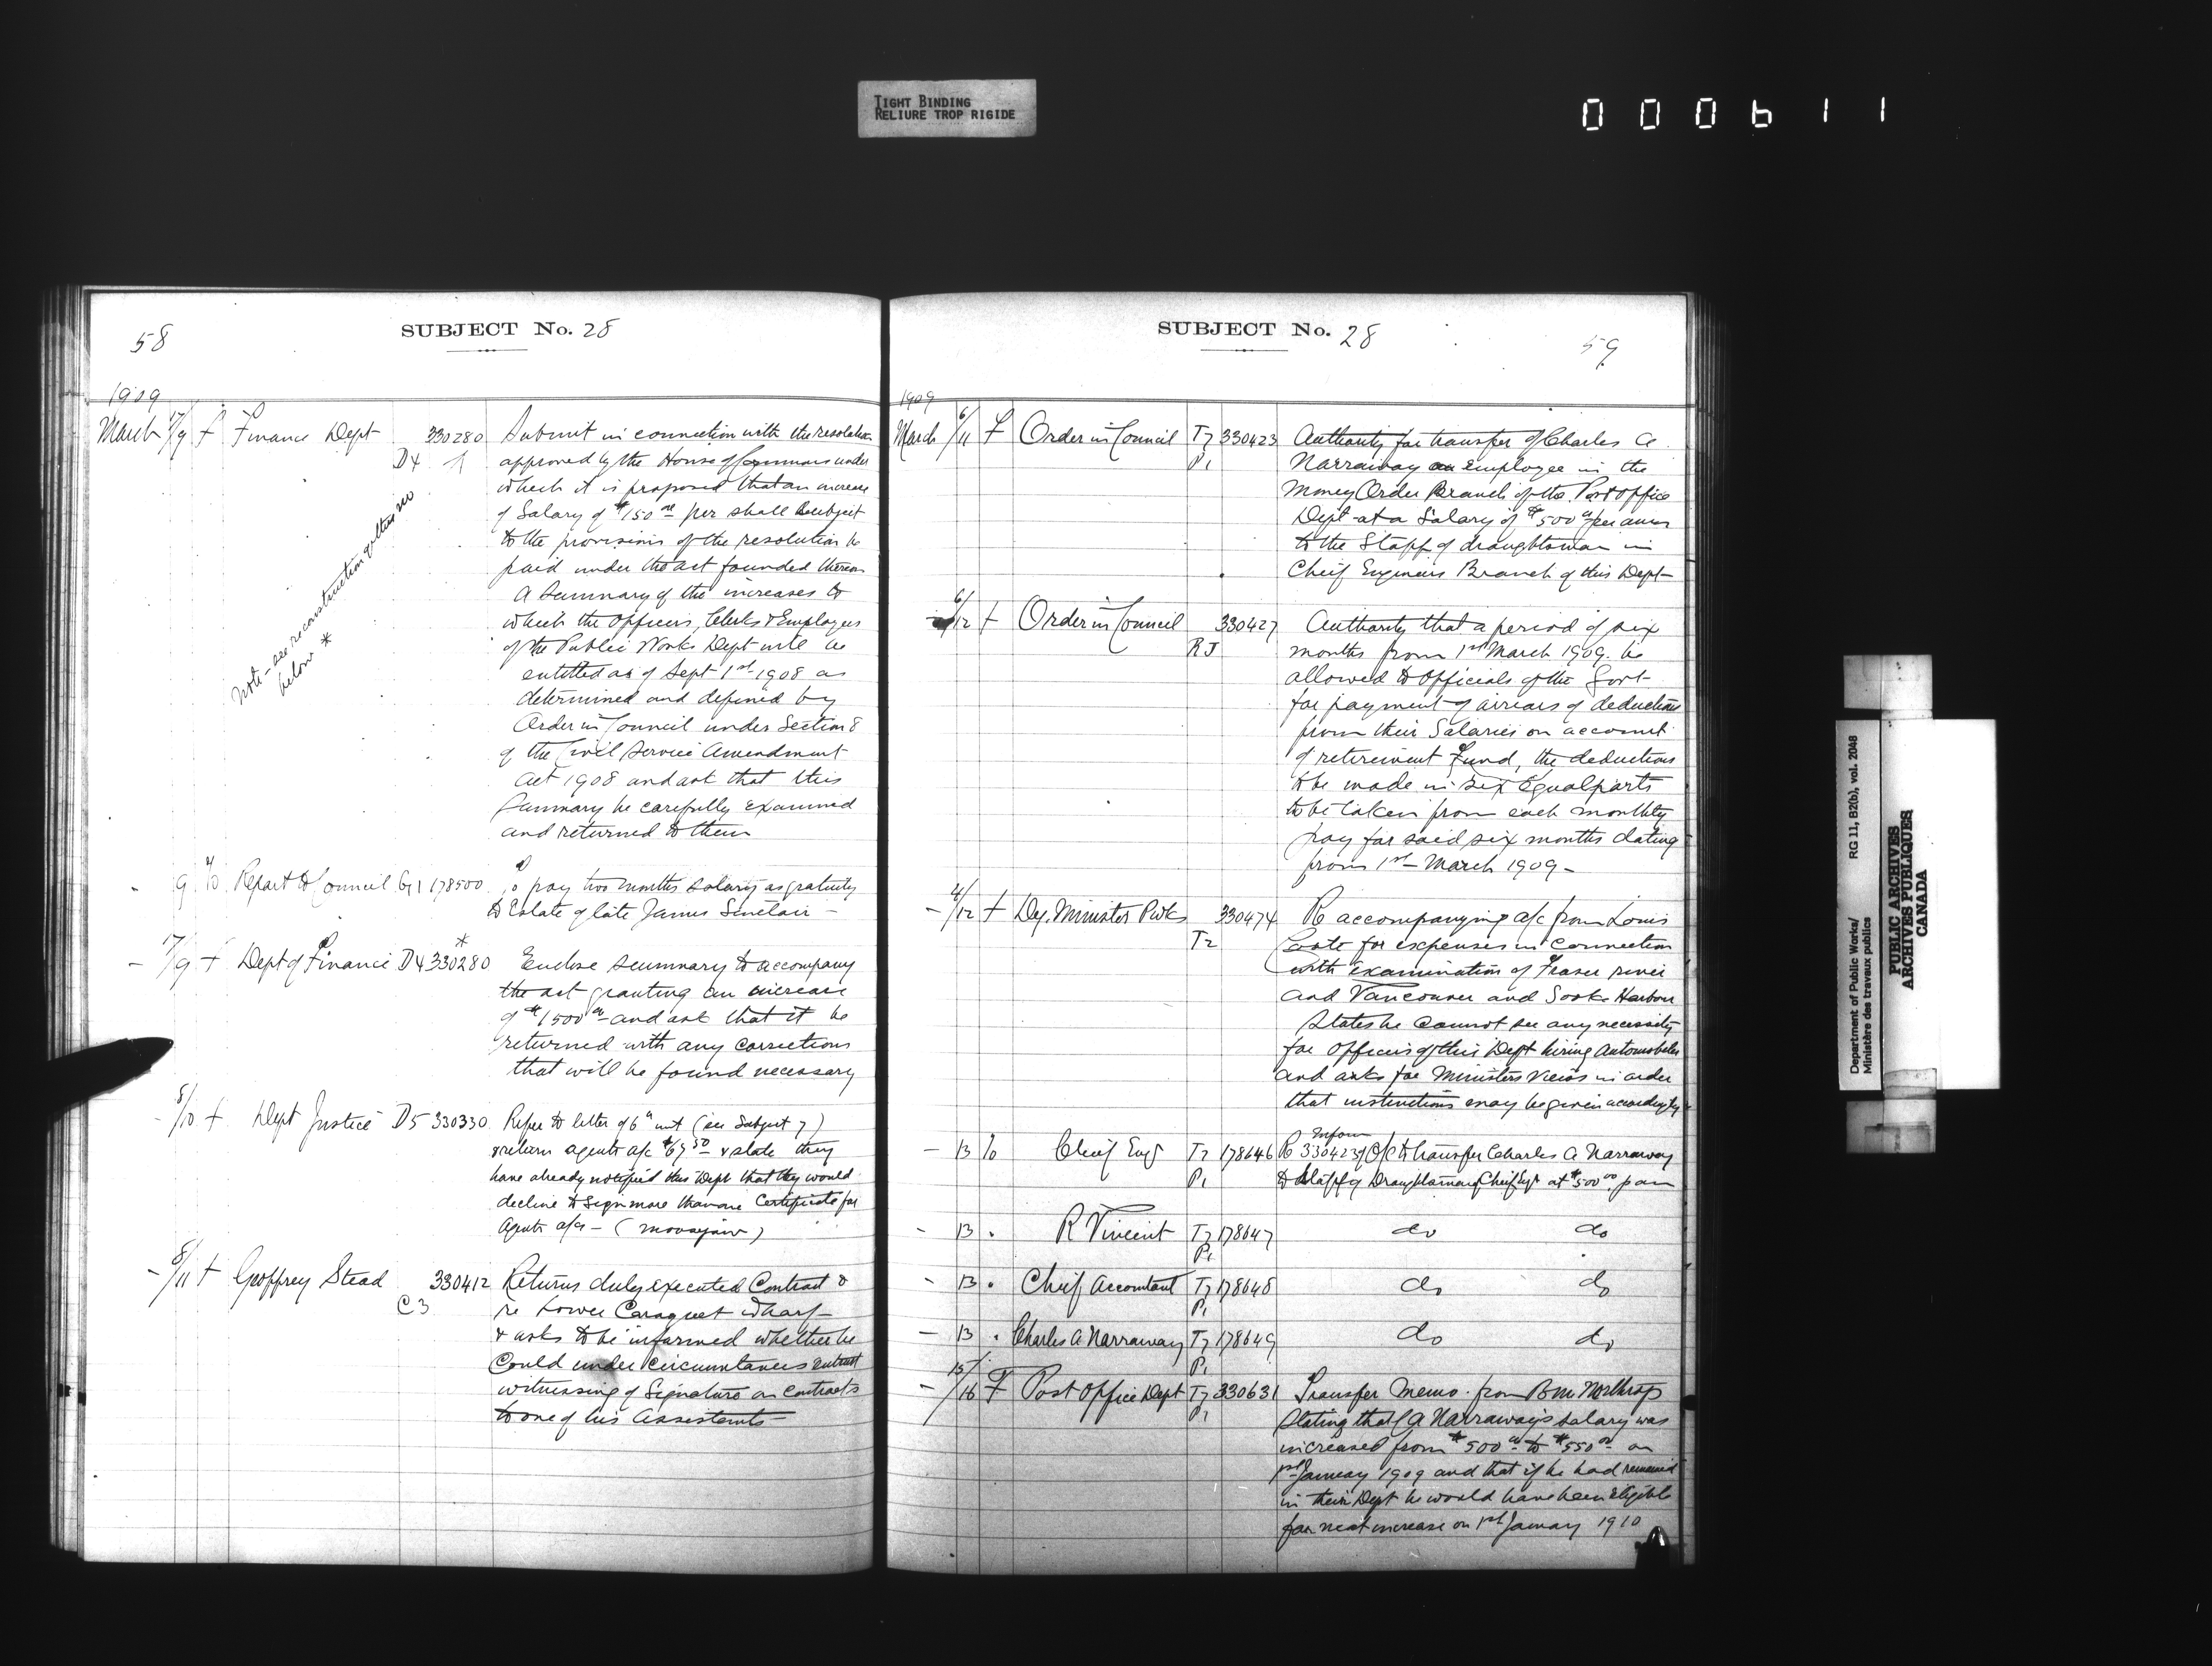 TIGHT BINDING
RELIURE TROP RIGIDE
000611
58
SUBJECT No. 28
1909
March 17/9 f Finance Dept 330280 Submit in connection with the resolution
D4 approved by the House of Commons under
which it is proposed that an increase
of Salary of $150 00 per shall subject
to the provisions of the resolution be
paid under the act founded thereon
A Summary of the increases to
which the Officers, Clerks & Employees
of the Public Works Dept will be
entitled as of Sept 1st 1908 as
determined and defined by
Order in Council under Section 8
of the Civil Service Amendment
Act 1908 and ask that this
Summary be carefully examined
and returned to them
Note - see reconstruction of
below *
- 9 Report to Council G1 178500 To pay two months salary as gratuity
to Estate of late James Sinclair -
- 17/9 f Dept of Finance D4 330280 * Enclose summary to accompany
the act granting an increase
of $1500 00 and ask that it be
returned with any corrections
that will be found necessary
- 8/10 f Dept Justice D5 330330 Refer to letter of 6th inst (see Subject 7)
& return agents a/c $67 50 & state they
have already notified this Dept that they would
decline to sign more than one Certificate for
Agents a/cs - (Moosejaw)
- 8/11 f Geoffrey Stead 330412 Returns duly executed Contract &
C3 re Lower Caraquet Wharf -
& asks to be informed whether he
could under circumstances entrust
witnessing of Signature on Contracts
to one of his Assistants -
SUBJECT No. 28
59
1909
March 6/11 f Order in Council T7 330423 Authority for transfer of Charles A
P1 Narraway an employee in the
Money Order Branch of the Post Office
Dept at a Salary of $500 00 per ann
to the Staff of draughtsman in
Cheif Engineers Branch of this Dept -
- 6/12 f Order in Council 330427 Authority that a period of six
RJ months from 1st March 1909 be
allowed to Officials of the Govt
for payment of arrears of deduction
from their Salaries on account
of retirement Fund, the deductions
to be made in six Equal parts
to be taken from each monthly
pay for said six months dating
from 1st March 1909 -
- 4/12 f Dy. Minister Pwks 330474 Re accompanying a/c from Louis
T2 Coste for expenses in connection
with examination of Fraser river
and Vancouver and Sooke Harbour
States he cannot see any necessity
for Officers of this Dept hiring Automobiles
and asks for Ministers views in order
that instructions may be given accordingly -
- 13 Cheif Eng T7 178646 Re 330423 Inform of O/C to transfer Charles A Narraway
P1 to Staff of Draughtsman of Cheif Eng at $500 00 p an
- 13 . R Vincent T7 178647 do do
P1
- 13 . Cheif Accountant T7 178648 do do
P1
- 13 . Charles A. Narraway T7 178649 do do
P1
- 15/16 f Post Office Dept T7 330631 Transfer Memo. from BM Northrop
P1 Stating that C A Narraway's salary was
increased from $500 00 to $550 00 on
1st January 1909 and that if he had remained
in their Dept he would have been Eligible
for next increase on 1st January 1910
Department of Public Works/
Ministère des travaux publics
RG 11, B2(b), vol. 2048
PUBLIC ARCHIVES
ARCHIVES PUBLIQUES
CANADA